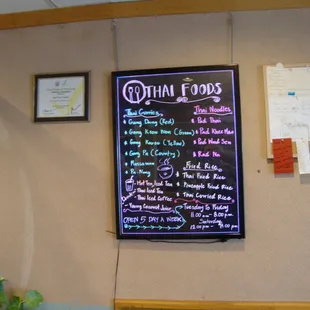 THAI FOODS
Thai Curries
Gang Dang (Red)
Gang Keaw Wan (Green)
Gang Karee (Yellow)
Gang Pa (Country)
Massaman
Pa-Nang
Hot Tea, Iced Tea
Thai Iced Tea
Thai Iced Coffee
Young Coconut Juice
OPEN 5 DAY A WEEK
Thai Noodles
Pad Thai
Pad Kee Mao
Pad Woon Sen
Rad Na
Fried Rice
Thai Fried Rice
Pineapple Fried Rice
Thai Curried Rice
Tuesday To Friday
11.00 am - 8.00 pm
Saturday
12.00 pm - 8.00 pm